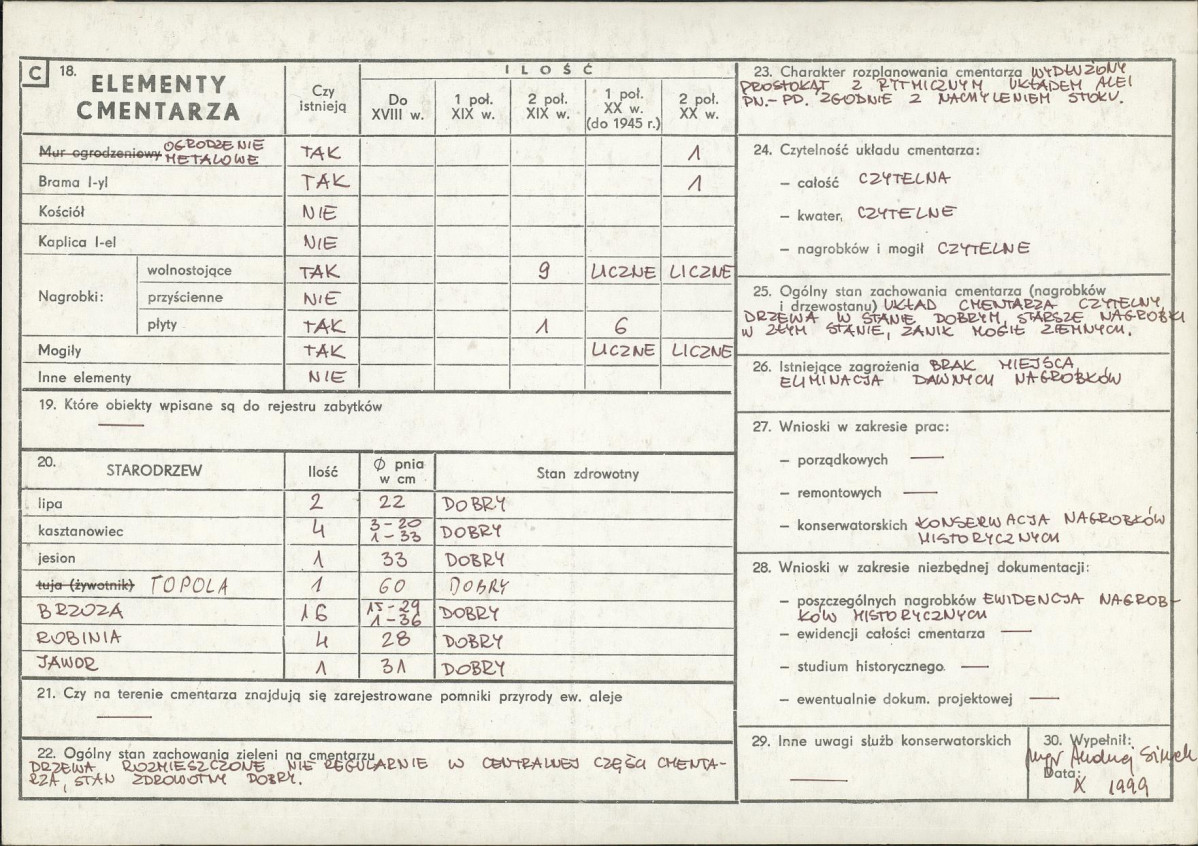 C 18. ELEMENTY CMENTARZA
Czy istnieją
ILOŚĆ
Do XVIII w.
1 poł. XIX w.
2 poł. XIX w.
1 poł. XX w. (do 1945 r.)
2 poł. XX w.
Mur ogrodzeniowy OGRODZENIE METALOWE TAK 1
Brama I-yl TAK 1
Kościół NIE
Kaplica I-el NIE
Nagrobki:
wolnostojące TAK 9 LICZNE LICZNE
przyścienne NIE
płyty TAK 1 6
Mogiły TAK LICZNE LICZNE
Inne elementy NIE
19. Które obiekty wpisane są do rejestru zabytków
—
20. STARODRZEW Ilość Ø pnia w cm Stan zdrowotny
lipa 2 22 DOBRY
kasztanowiec 4 3-20 1-33 DOBRY
jesion 1 33 DOBRY
tuja (żywotnik) TOPOLA 1 60 DOBRY
BRZOZA 16 15-29 1-36 DOBRY
ROBINIA 4 28 DOBRY
JAWOR 1 31 DOBRY
21. Czy na terenie cmentarza znajdują się zarejestrowane pomniki przyrody ew. aleje
—
22. Ogólny stan zachowania zieleni na cmentarzu
DRZEWA ROZMIESZCZONE NIEREGULARNIE W CENTRALNEJ CZĘŚCI CMENTA-
RZA, STAN ZDROWOTNY DOBRY.
23. Charakter rozplanowania cmentarza WYDŁUŻONY
PROSTOKĄT Z RYTMICZNYM UKŁADEM ALEI
PN.-PD. ZGODNIE Z NACHYLENIEM STOKU.
24. Czytelność układu cmentarza:
– całość CZYTELNA
– kwater, CZYTELNE
– nagrobków i mogił CZYTELNE
25. Ogólny stan zachowania cmentarza (nagrobków
i drzewostanu) UKŁAD CMENTARZA CZYTELNY,
DRZEWA W STANIE DOBRYM, STARSZE NAGROBKI
W ZŁYM STANIE, ZANIK MOGIŁ ZIEMNYCH.
26. Istniejące zagrożenia BRAK MIEJSCA,
ELIMINACJA DAWNYCH NAGROBKÓW
27. Wnioski w zakresie prac:
– porządkowych —
– remontowych —
– konserwatorskich KONSERWACJA NAGROBKÓW
HISTORYCZNYCH
28. Wnioski w zakresie niezbędnej dokumentacji:
– poszczególnych nagrobków EWIDENCJA NAGROB-
KÓW HISTORYCZNYCH
– ewidencji całości cmentarza —
– studium historycznego. —
– ewentualnie dokum. projektowej —
29. Inne uwagi służb konserwatorskich
—
30. Wypełnił:
mgr Andrzej
Data:
X 1999